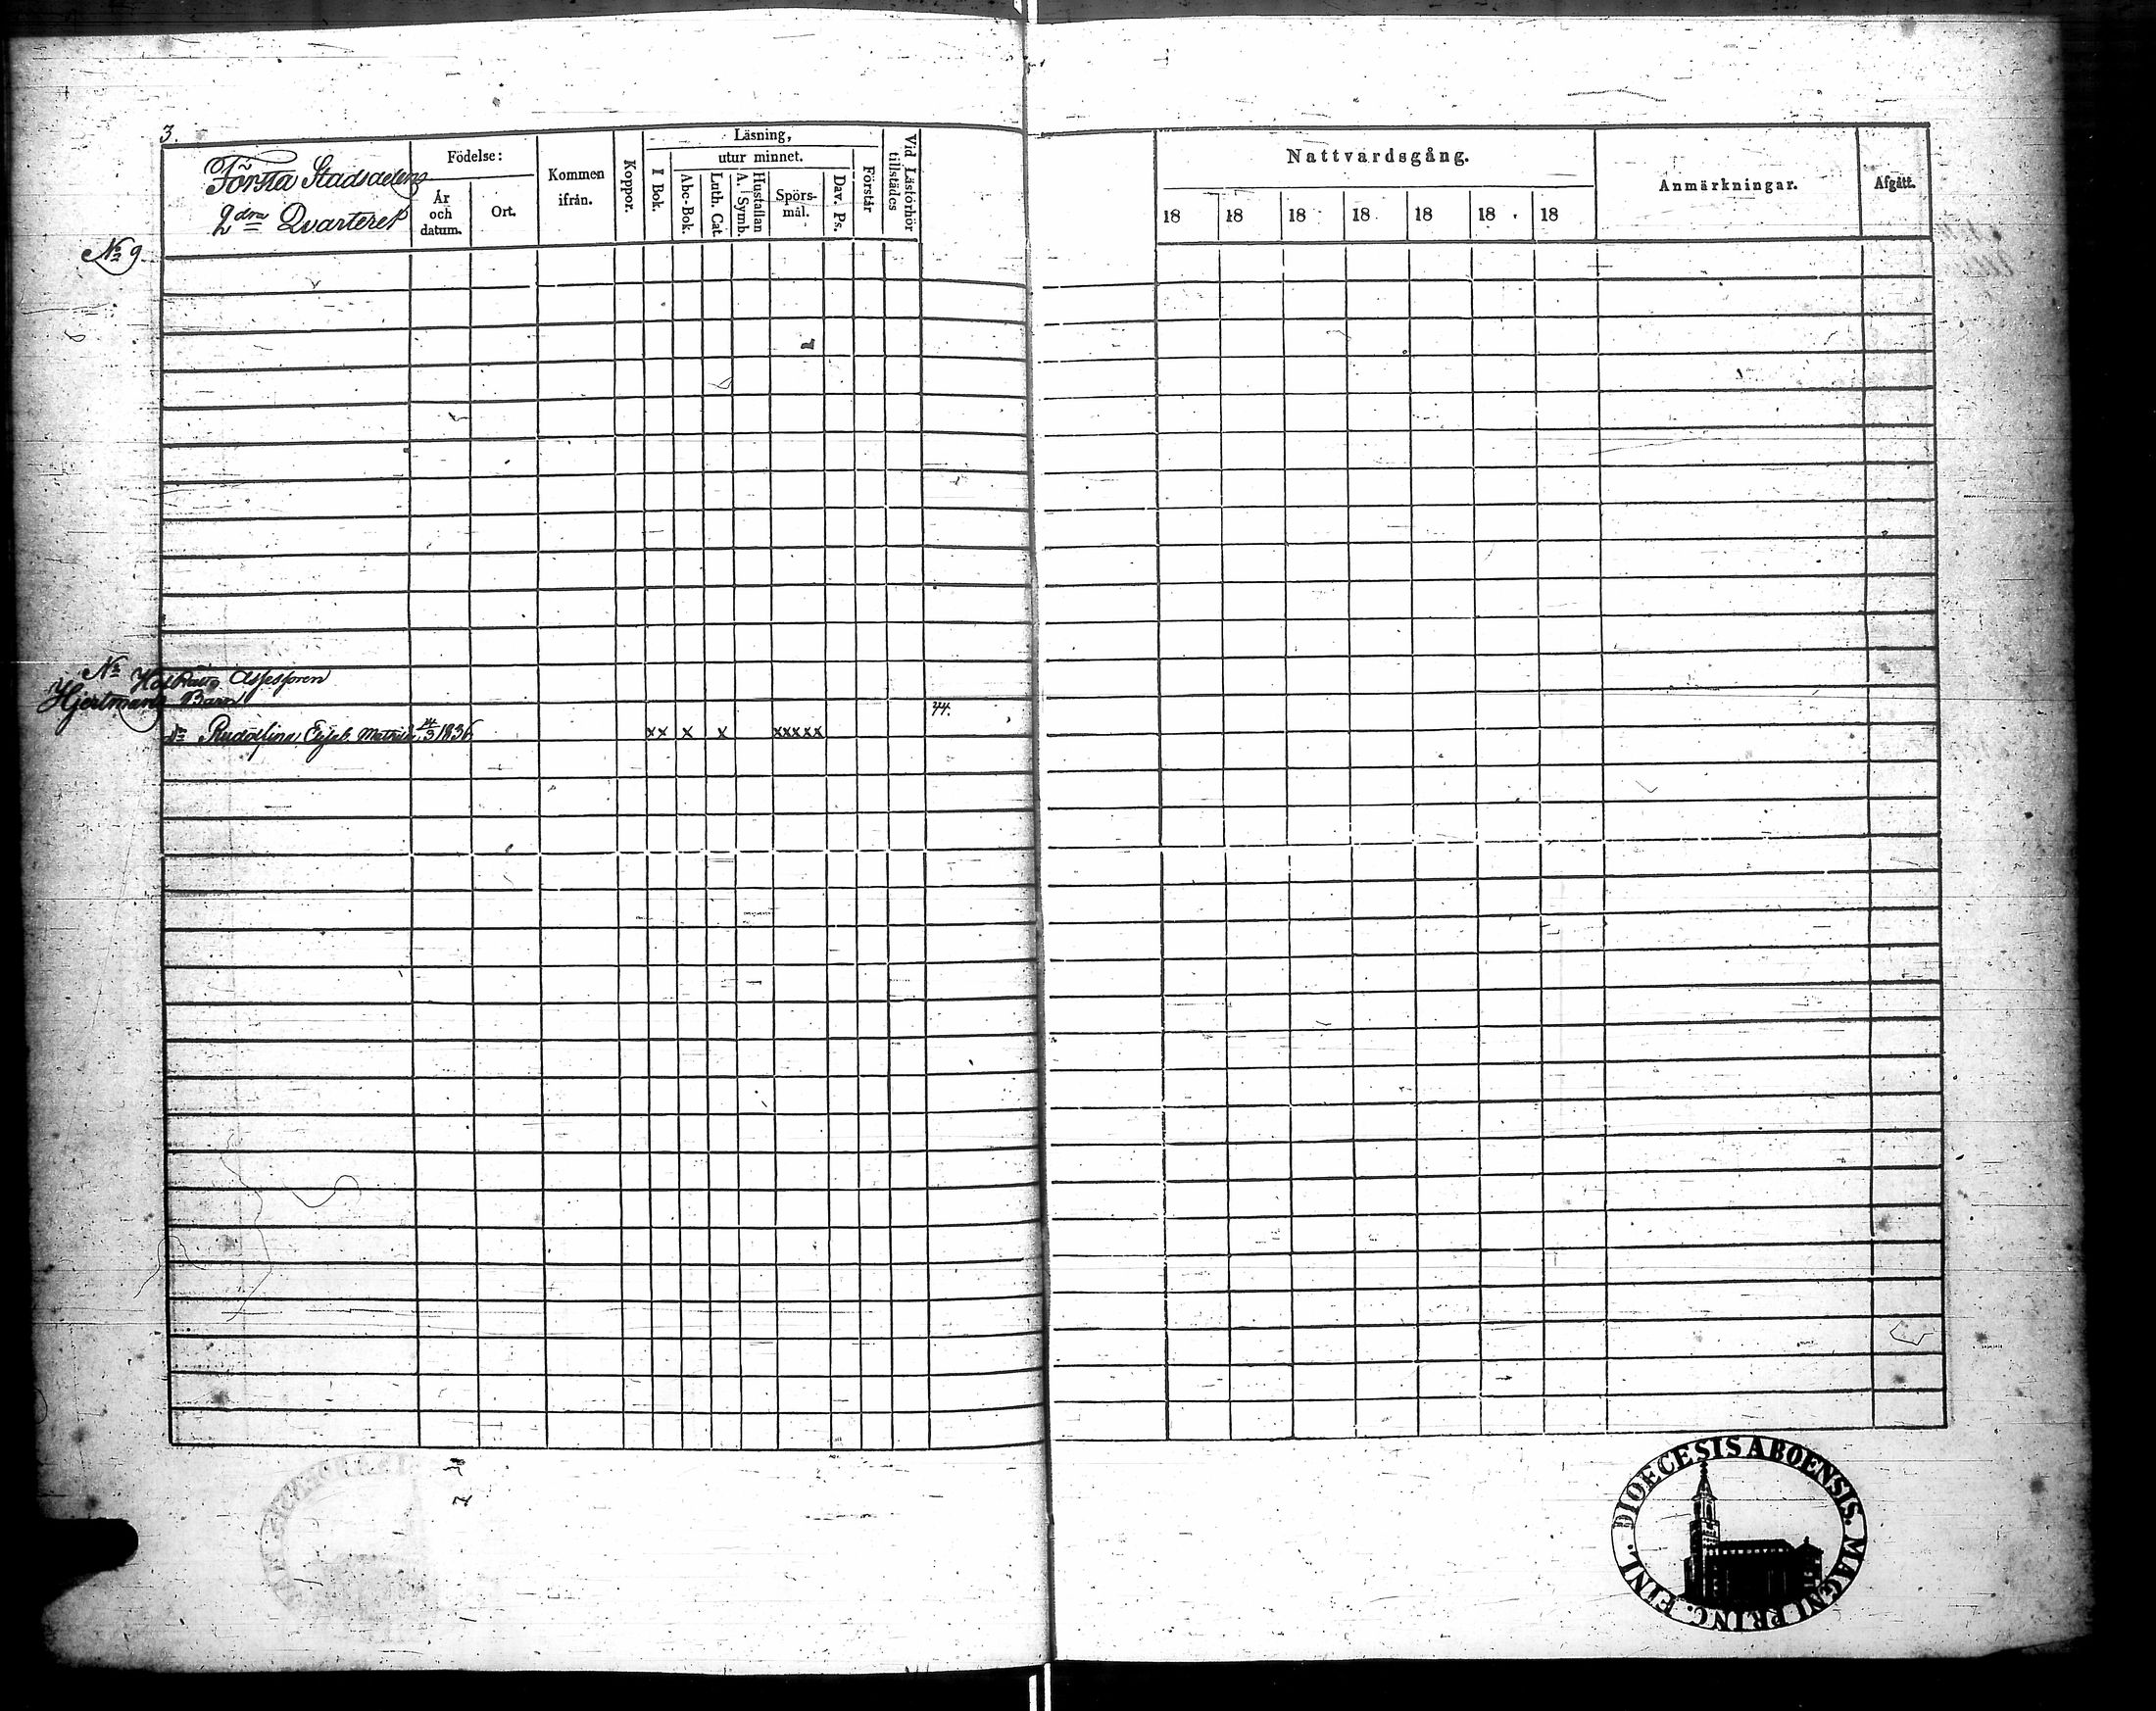 3.
Första Stadsdelens
2dra Qvarteret
Födelse:
År och datum.
Ort.
Kommen ifrån.
Koppor.
Läsning,
I Bok.
utur minnet.
Abc-Bok.
Luth. Cat.
Hustaflan A. Symb.
Spörs-mål.
Dav. Ps.
Förstår
Vid Läsförhör tillstädes
Nattvardsgång.
18 18 18 18 18 18 18
Anmärkningar.
Afgått.
No 9
No Hofrätts Assessoren
Hjertmans Barn
44.
Rudolfina 14/3 1836 xx x x xxxxx
DIOECESIS ABOENSIS. MAGNI PRINC. FINL.